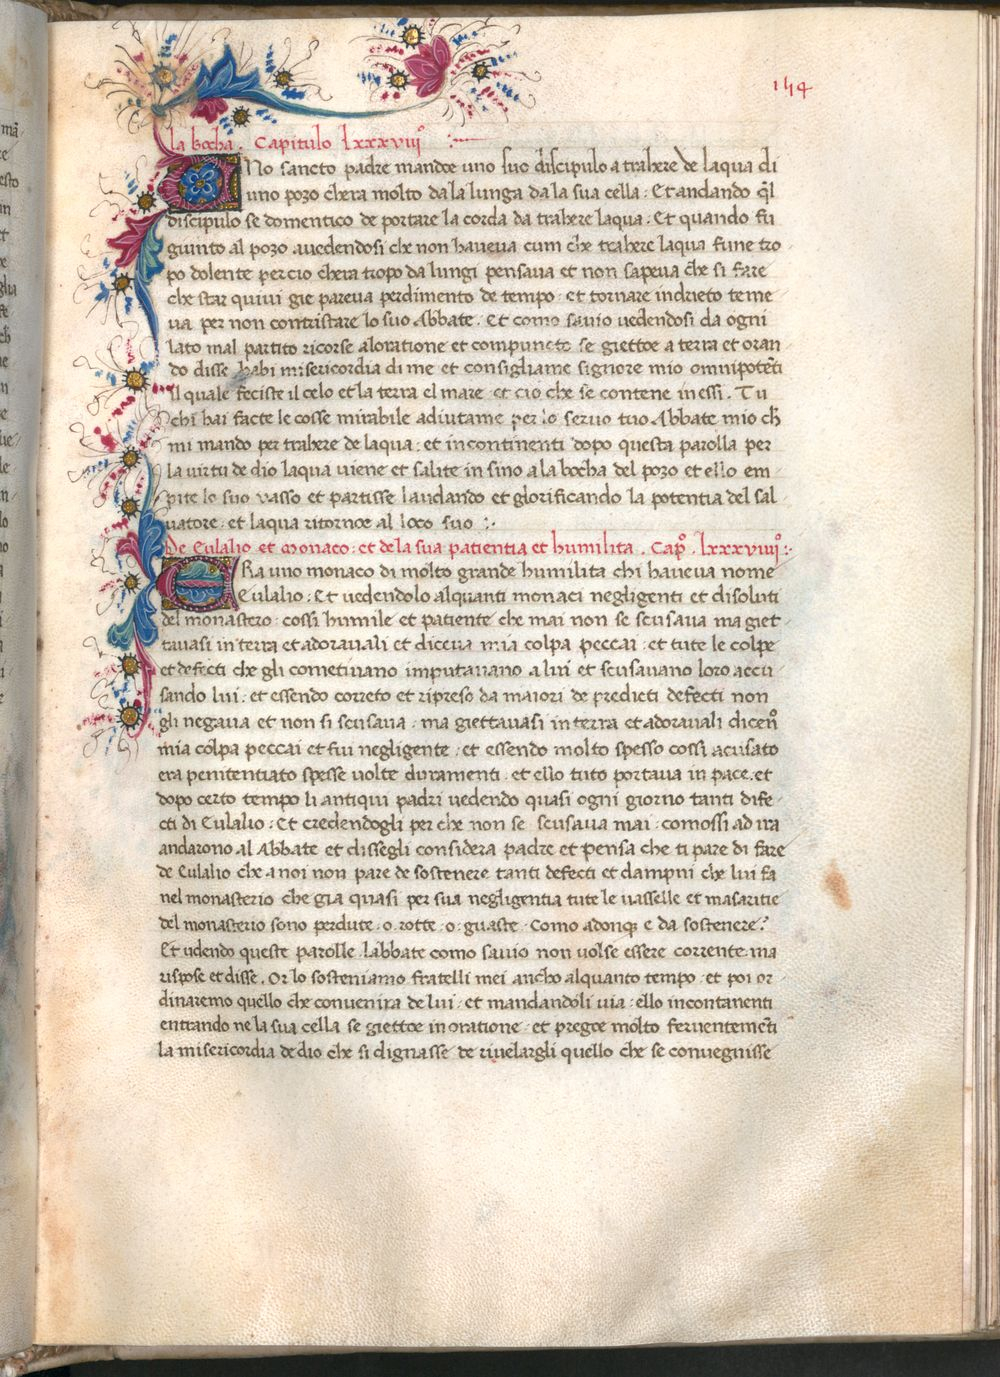 154
la bocha . Capitulo lxxxviijº
UNo sancto padre mandoe uno suo discipulo a trahere de laqua di
uno pozo chera molto da la lunga da la sua cella : Et andando q̃l
discipulo se domentico de portare la corda da trahere laqua · Et quando fu
giunto al pozo auedendosi che non haueua cum che trahere laqua fune tro
po dolente percio chera tropo da lungi pensaua et non sapeua che si fare
che star quiui gie pareua perdimento de tempo · et tornare indrieto teme
ua per non contristare lo suo Abbate . Et como sauio uedendosi da ogni
lato mal partito ricorse aloratione et compuncto se giettoe a terra et oran
do disse habi misericordia di me et consigliame signore mio omnipotẽti
Il quale feciste il celo et la terra el mare · et cio che se contene in essi . Tu
chi hai facte le cosse mirabile adiutame per lo seruo tuo Abbate mio ch̃
mi mando per trahere de laqua · et incontinenti dopo questa parolla per
la uirtu de dio laqua uiene et salite in sino a la bocha del pozo et ello em
pite lo suo vasso et partisse laudando et glorificando la potentia del sal
uatore · et laqua ritornoe al loco suo :·
De Eulalio et monaco · et de la sua patientia et humilita . Capº . lxxxviiijº :·
ERa uno monaco di molto grande humilita chi haueua nome
Eulalio : Et uedendolo alquanti monaci negligenti et disoluti
del monastero · cossi humile et patiente che mai non se scusaua ma giet
tauasi in terra et adorauali et diceua mia colpa peccai · et tute le colpe
et defecti che gli cometiuano imputauano a lui et scusauano loro accu
sando lui · et essendo correto et ripreso da maiori de predicti defecti non
gli negaua et non si scusaua · ma giettauasi in terra et adorauali dicen̄
mia colpa peccai et fui negligente · et essendo molto spesso cossi acusato
era penitentiato spesse uolte duramenti · et ello tuto portaua in pace. et
dopo certo tempo li antiqui padri uedendo quasi ogni giorno tanti dife
cti di Eulalio : Et credendogli per che non se scusaua mai · comossi ad ira
andarono al Abbate et dissegli considera padre et pensa che ti pare di fare
de Eulalio che a noi non pare de sostenere tanti defecti et dampni che lui fa
nel monasterio che gia quasi per sua negligentia tute le uasselle et masaritie
del monasterio sono perdute · o · rotte · o · guaste . Como adonq̃ e da sostenere?
Et udendo queste parolle labbate como sauio non volse essere corrente ma
rispose et disse . Or lo sosteniamo fratelli mei ancho alquanto tempo · et poi or
dinaremo quello che conuenira de lui · et mandandoli uia · ello incontanenti
entrando ne la sua cella se giettoe in oratione · et pregoe molto feruentemẽti
la misericordia de dio che si dignasse de riuelargli quello che se conuegnisse